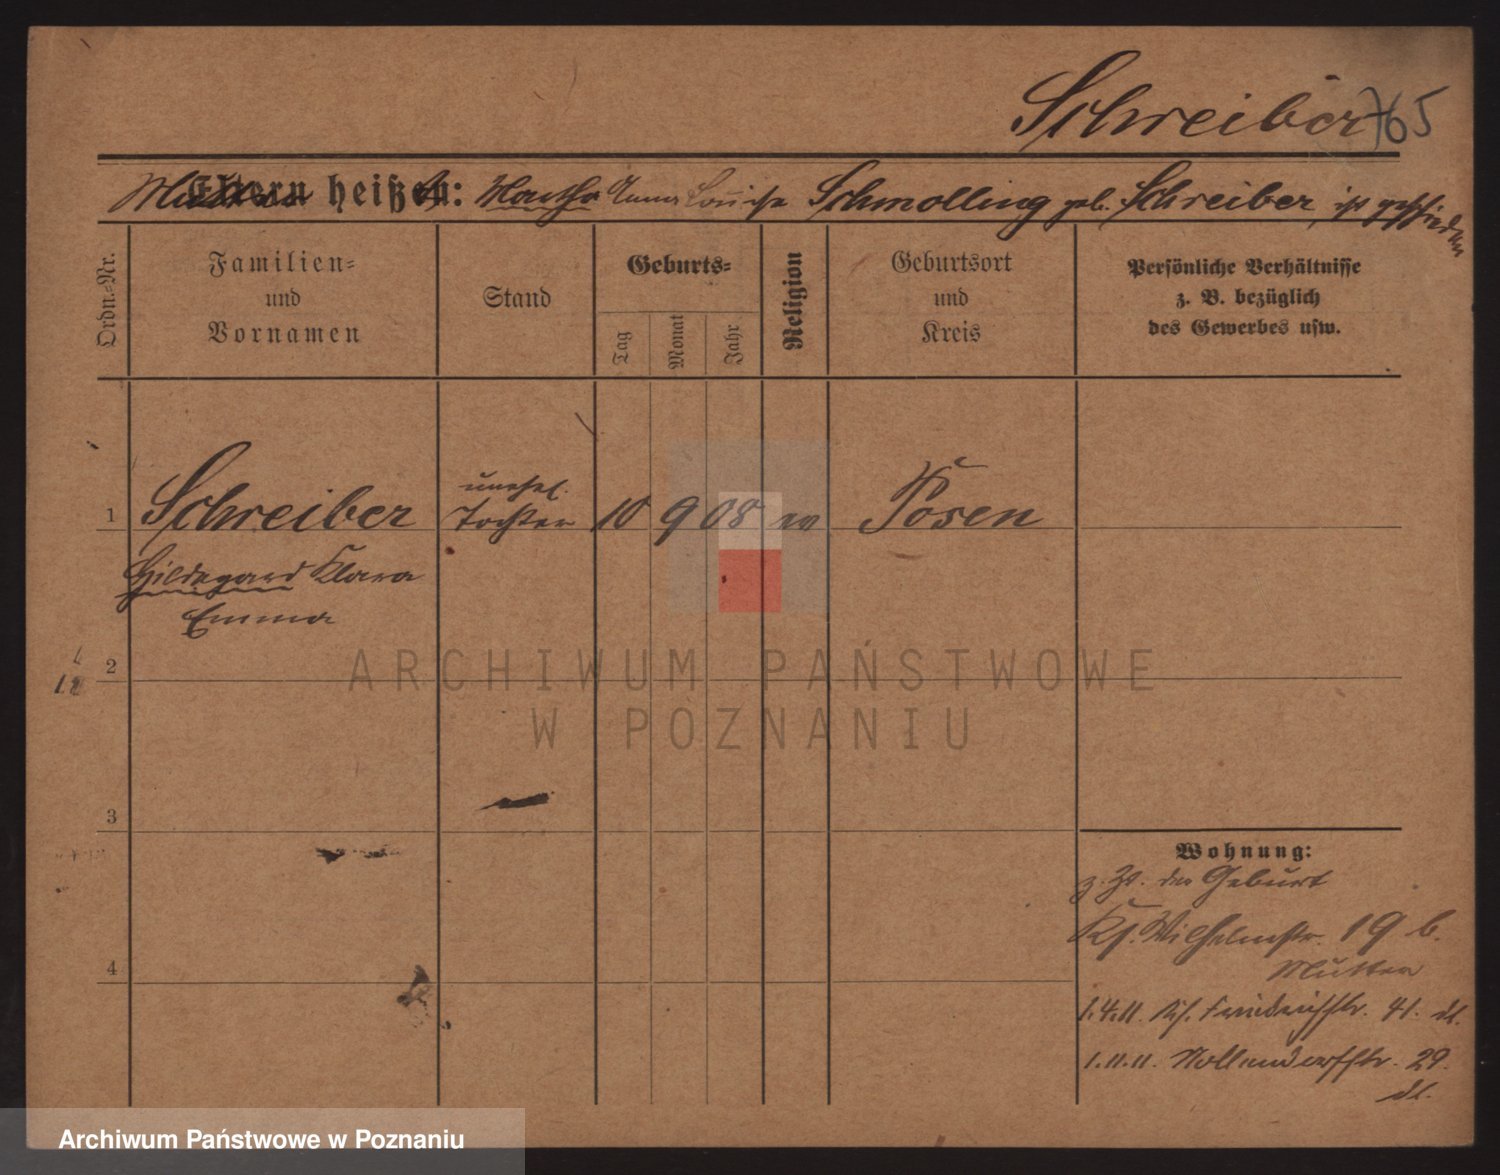 Schreiber 765
Mutter heißt: Martha Anna Louise Schmolling geb. Schreiber, ist geschieden
Ordn.-Nr.
Familien-
und
Vornamen
Stand
Geburts-
Tag
Monat
Jahr
Religion
Geburtsort
und
Kreis
Persönliche Verhältnisse
z. B. bezüglich
des Gewerbes usw.
unehel.
1 Schreiber Tochter 10 9 08 ev Posen
Hildegard Klara
Emma
2
3
4
Wohnung:
z. Zt. der Geburt
Ks. Wilhelmstr. 19 b.
Mutter
1.4.11. Ks. Friedrichstr. 41. dt.
1.11.11. Nollendorfstr. 29.
dt.
ARCHIWUM PAŃSTWOWE
W POZNANIU
Archiwum Państwowe w Poznaniu